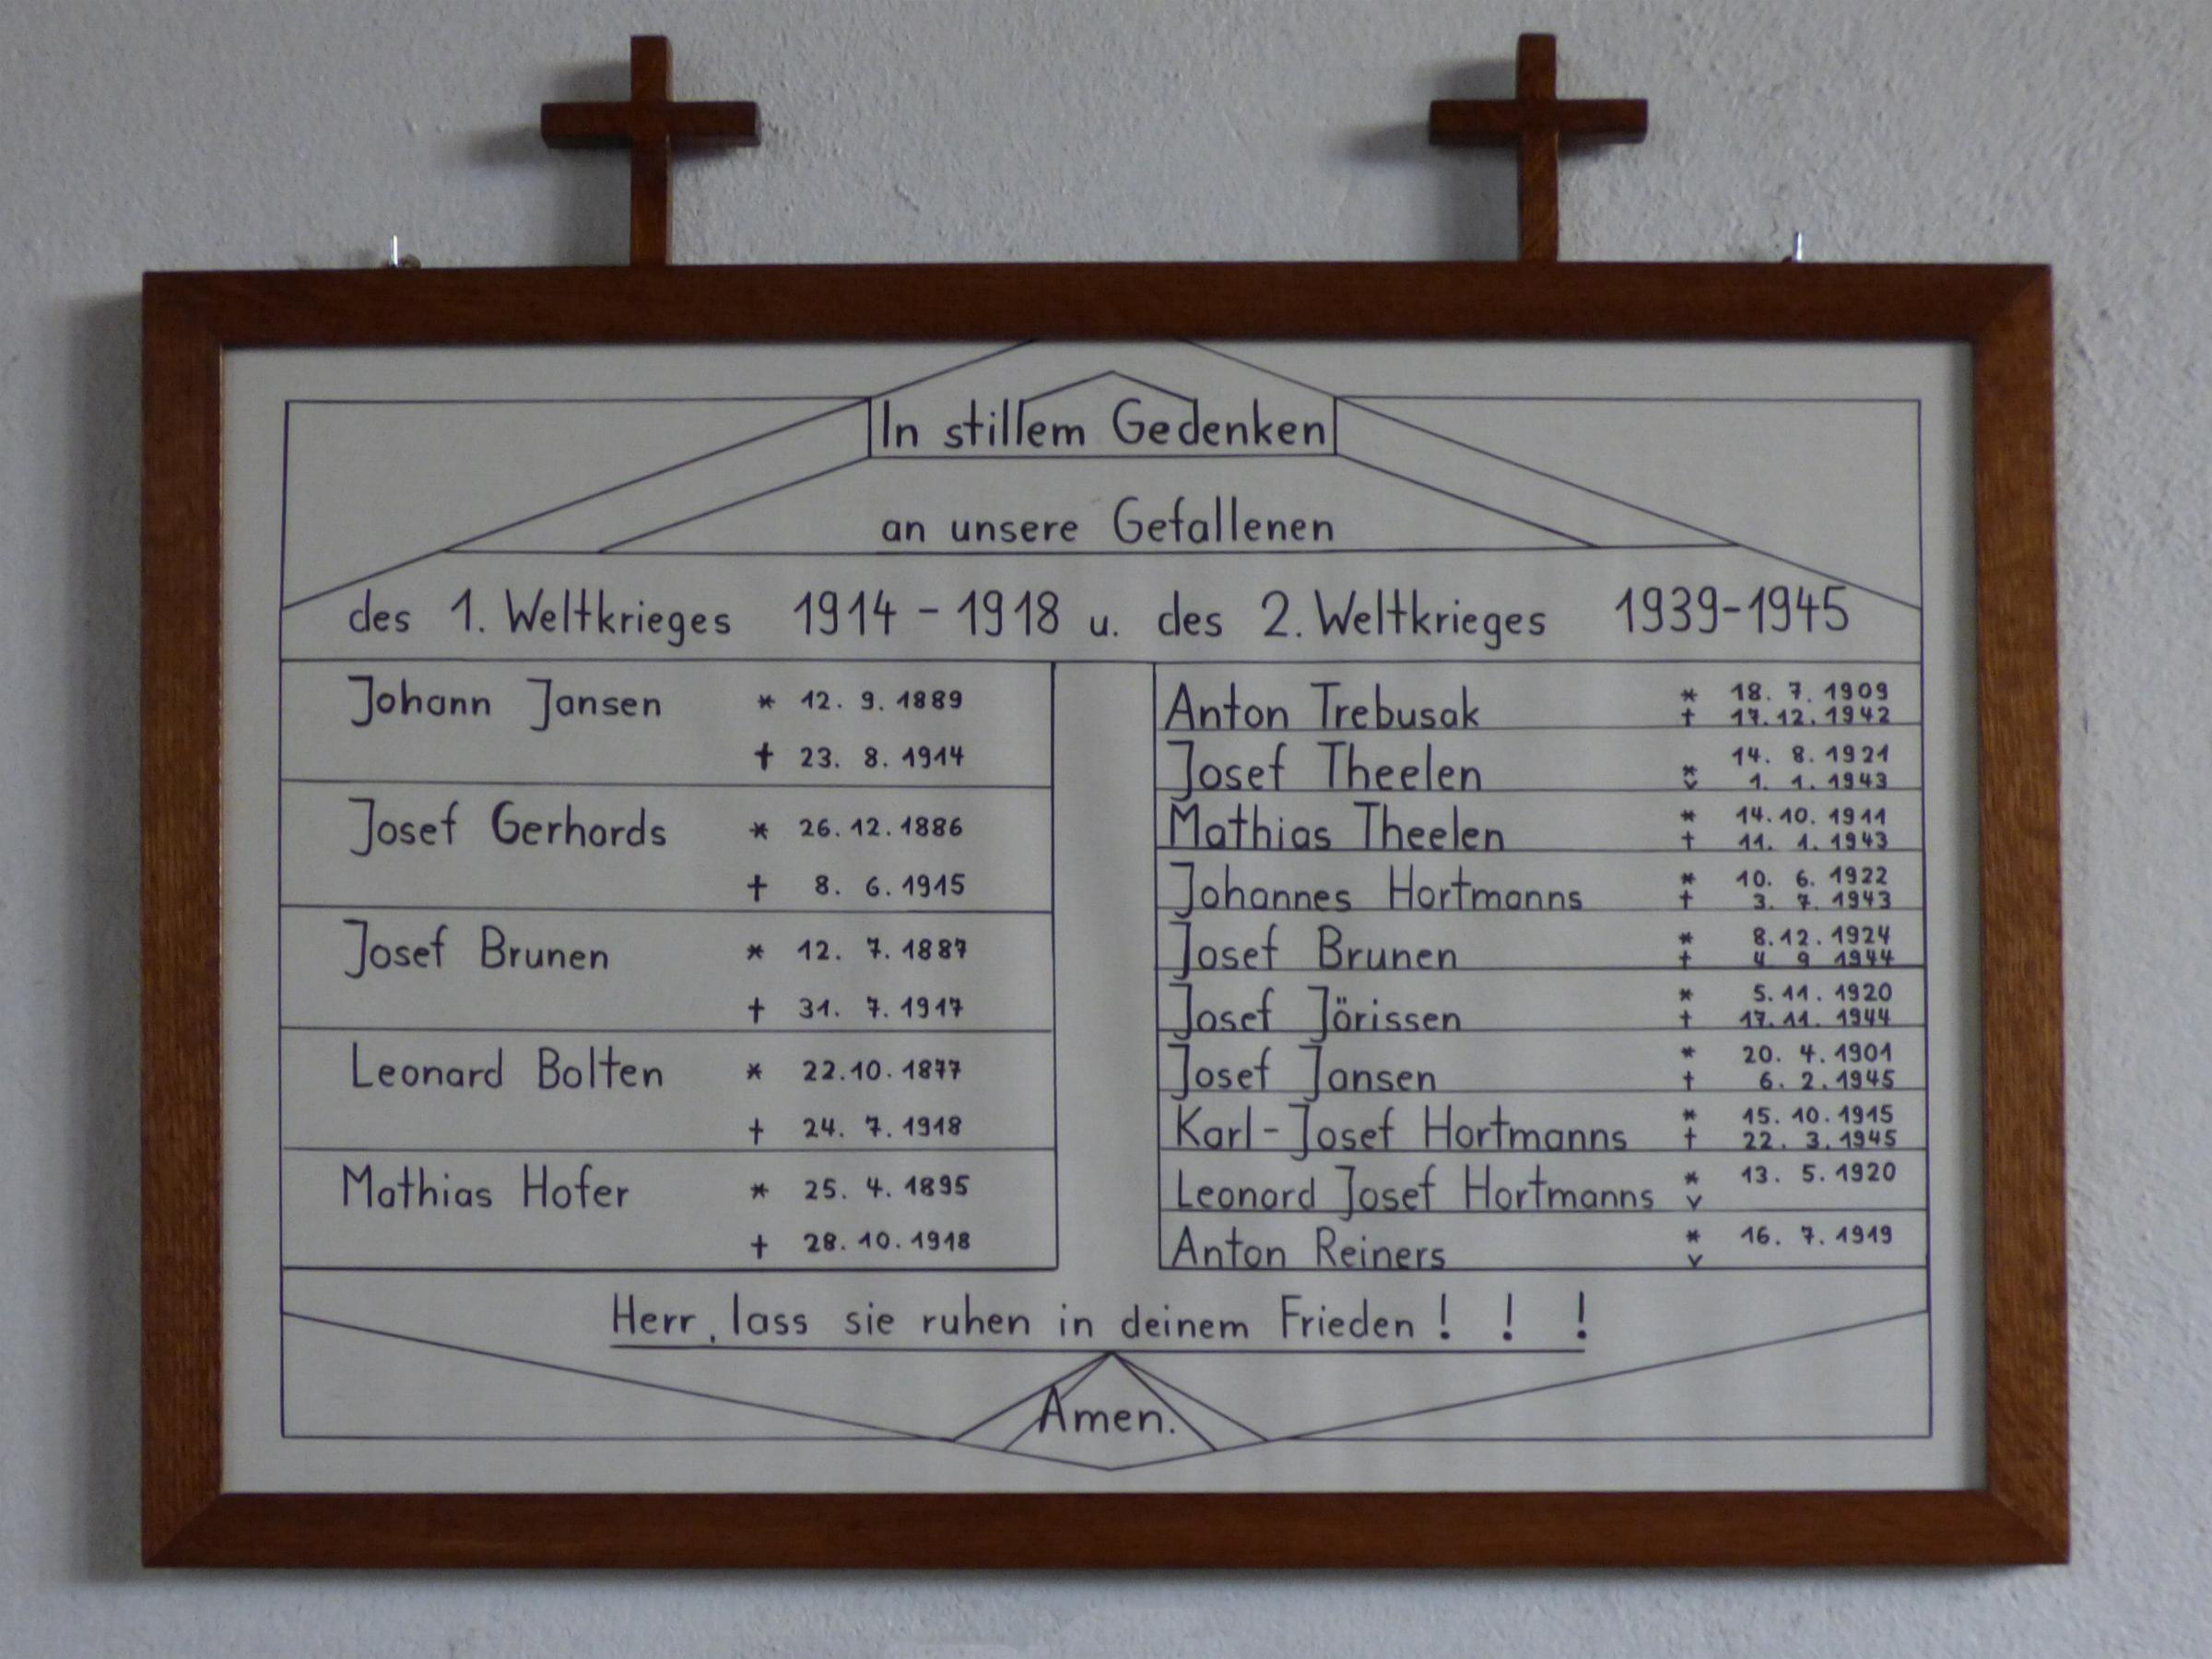 In stillem Gedenken
an unsere Gefallenen
des 1. Weltkrieges 1914 - 1918 u. des 2. Weltkrieges 1939-1945
Johann Jansen * 12. 9. 1889
† 23. 8. 1914
Josef Gerhards * 26. 12. 1886
† 8. 6. 1915
Josef Brunen * 12. 7. 1887
† 31. 7. 1917
Leonard Bolten * 22.10.1877
† 24. 7. 1918
Mathias Hofer * 25. 4. 1895
† 28. 10. 1918
Anton Trebusak * 18. 7. 1909
† 17.12.1942
Josef Theelen * 14. 8. 1921
v 1. 1. 1943
Mathias Theelen * 14.10.1911
† 11. 1. 1943
Johannes Hortmanns * 10. 6. 1922
† 3. 7. 1943
Josef Brunen * 8.12.1924
† 4 9 1944
Josef Jörissen * 5.11.1920
† 17.11.1944
Josef Jansen * 20. 4. 1901
† 6. 2. 1945
Karl-Josef Hortmanns * 15.10.1915
† 22. 3. 1945
Leonard Josef Hortmanns * 13. 5. 1920
v
Anton Reiners * 16. 7. 1919
v
Herr, lass sie ruhen in deinem Frieden ! ! !
Amen.